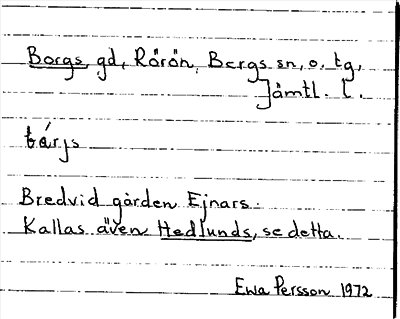 Borgs gd, Rörön, Bergs sn, o, tg,
Jämtl. l.
bárjs
Bredvid gården Ejnars.
Kallas även Hedlunds, se detta.
Ewa Persson 1972